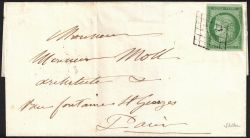 Monsieur
Monsieur Moll
architecte
rue fontaine St Georges
Paris